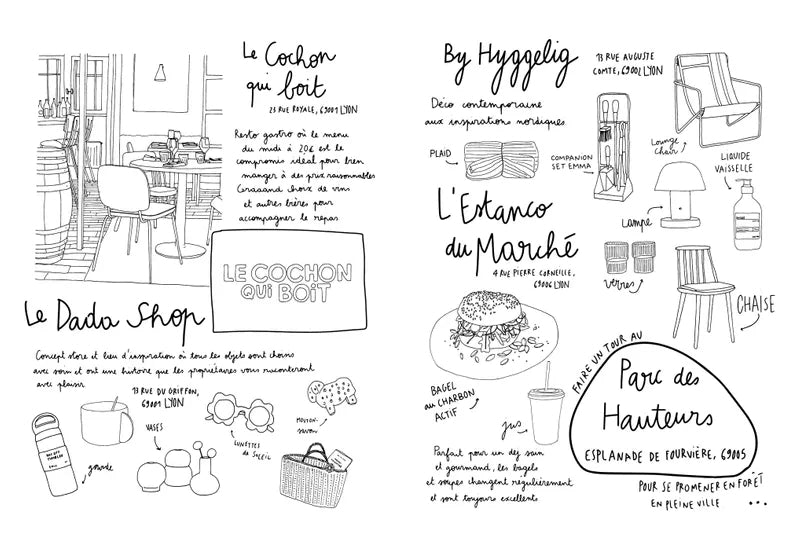 Le Cochon
qui boit
23 RUE ROYALE, 69001 LYON
Resto gastro où le menu
du midi à 20€ est le
compromis idéal pour bien
manger à des prix raisonnables
Graaand choix de vins
et autres bières pour
accompagner le repas
LE COCHON
QUI BOIT
Le Dada Shop
Concept store et lieu d'inspiration où tous les objets sont choisis
avec soin et ont une histoire que les propriétaires vous raconteront
avec plaisir
13 RUE DU GRIFFON,
69001 LYON
gourde
VASES
LUNETTES
de SOLEIL
MOUTON-
savon
By Hyggelig
13 RUE AUGUSTE
COMTE, 69002 LYON
Déco contemporaine
aux inspirations nordiques
PLAID
COMPANION
SET EMMA
Lounge
Chair
LIQUIDE
VAISSELLE
Lampe
verres
CHAISE
L'Estanco
du Marché
4 RUE PIERRE CORNEILLE,
69006 LYON
BAGEL
au CHARBON
ACTIF
jus
Parfait pour un dej sain
et gourmand, les bagels
et soupes changent régulièrement
et sont toujours excellents
FAIRE UN TOUR AU
Parc des
Hauteurs
ESPLANADE DE FOURVIÈRE, 69005
POUR SE PROMENER EN FORÊT
EN PLEINE VILLE ...